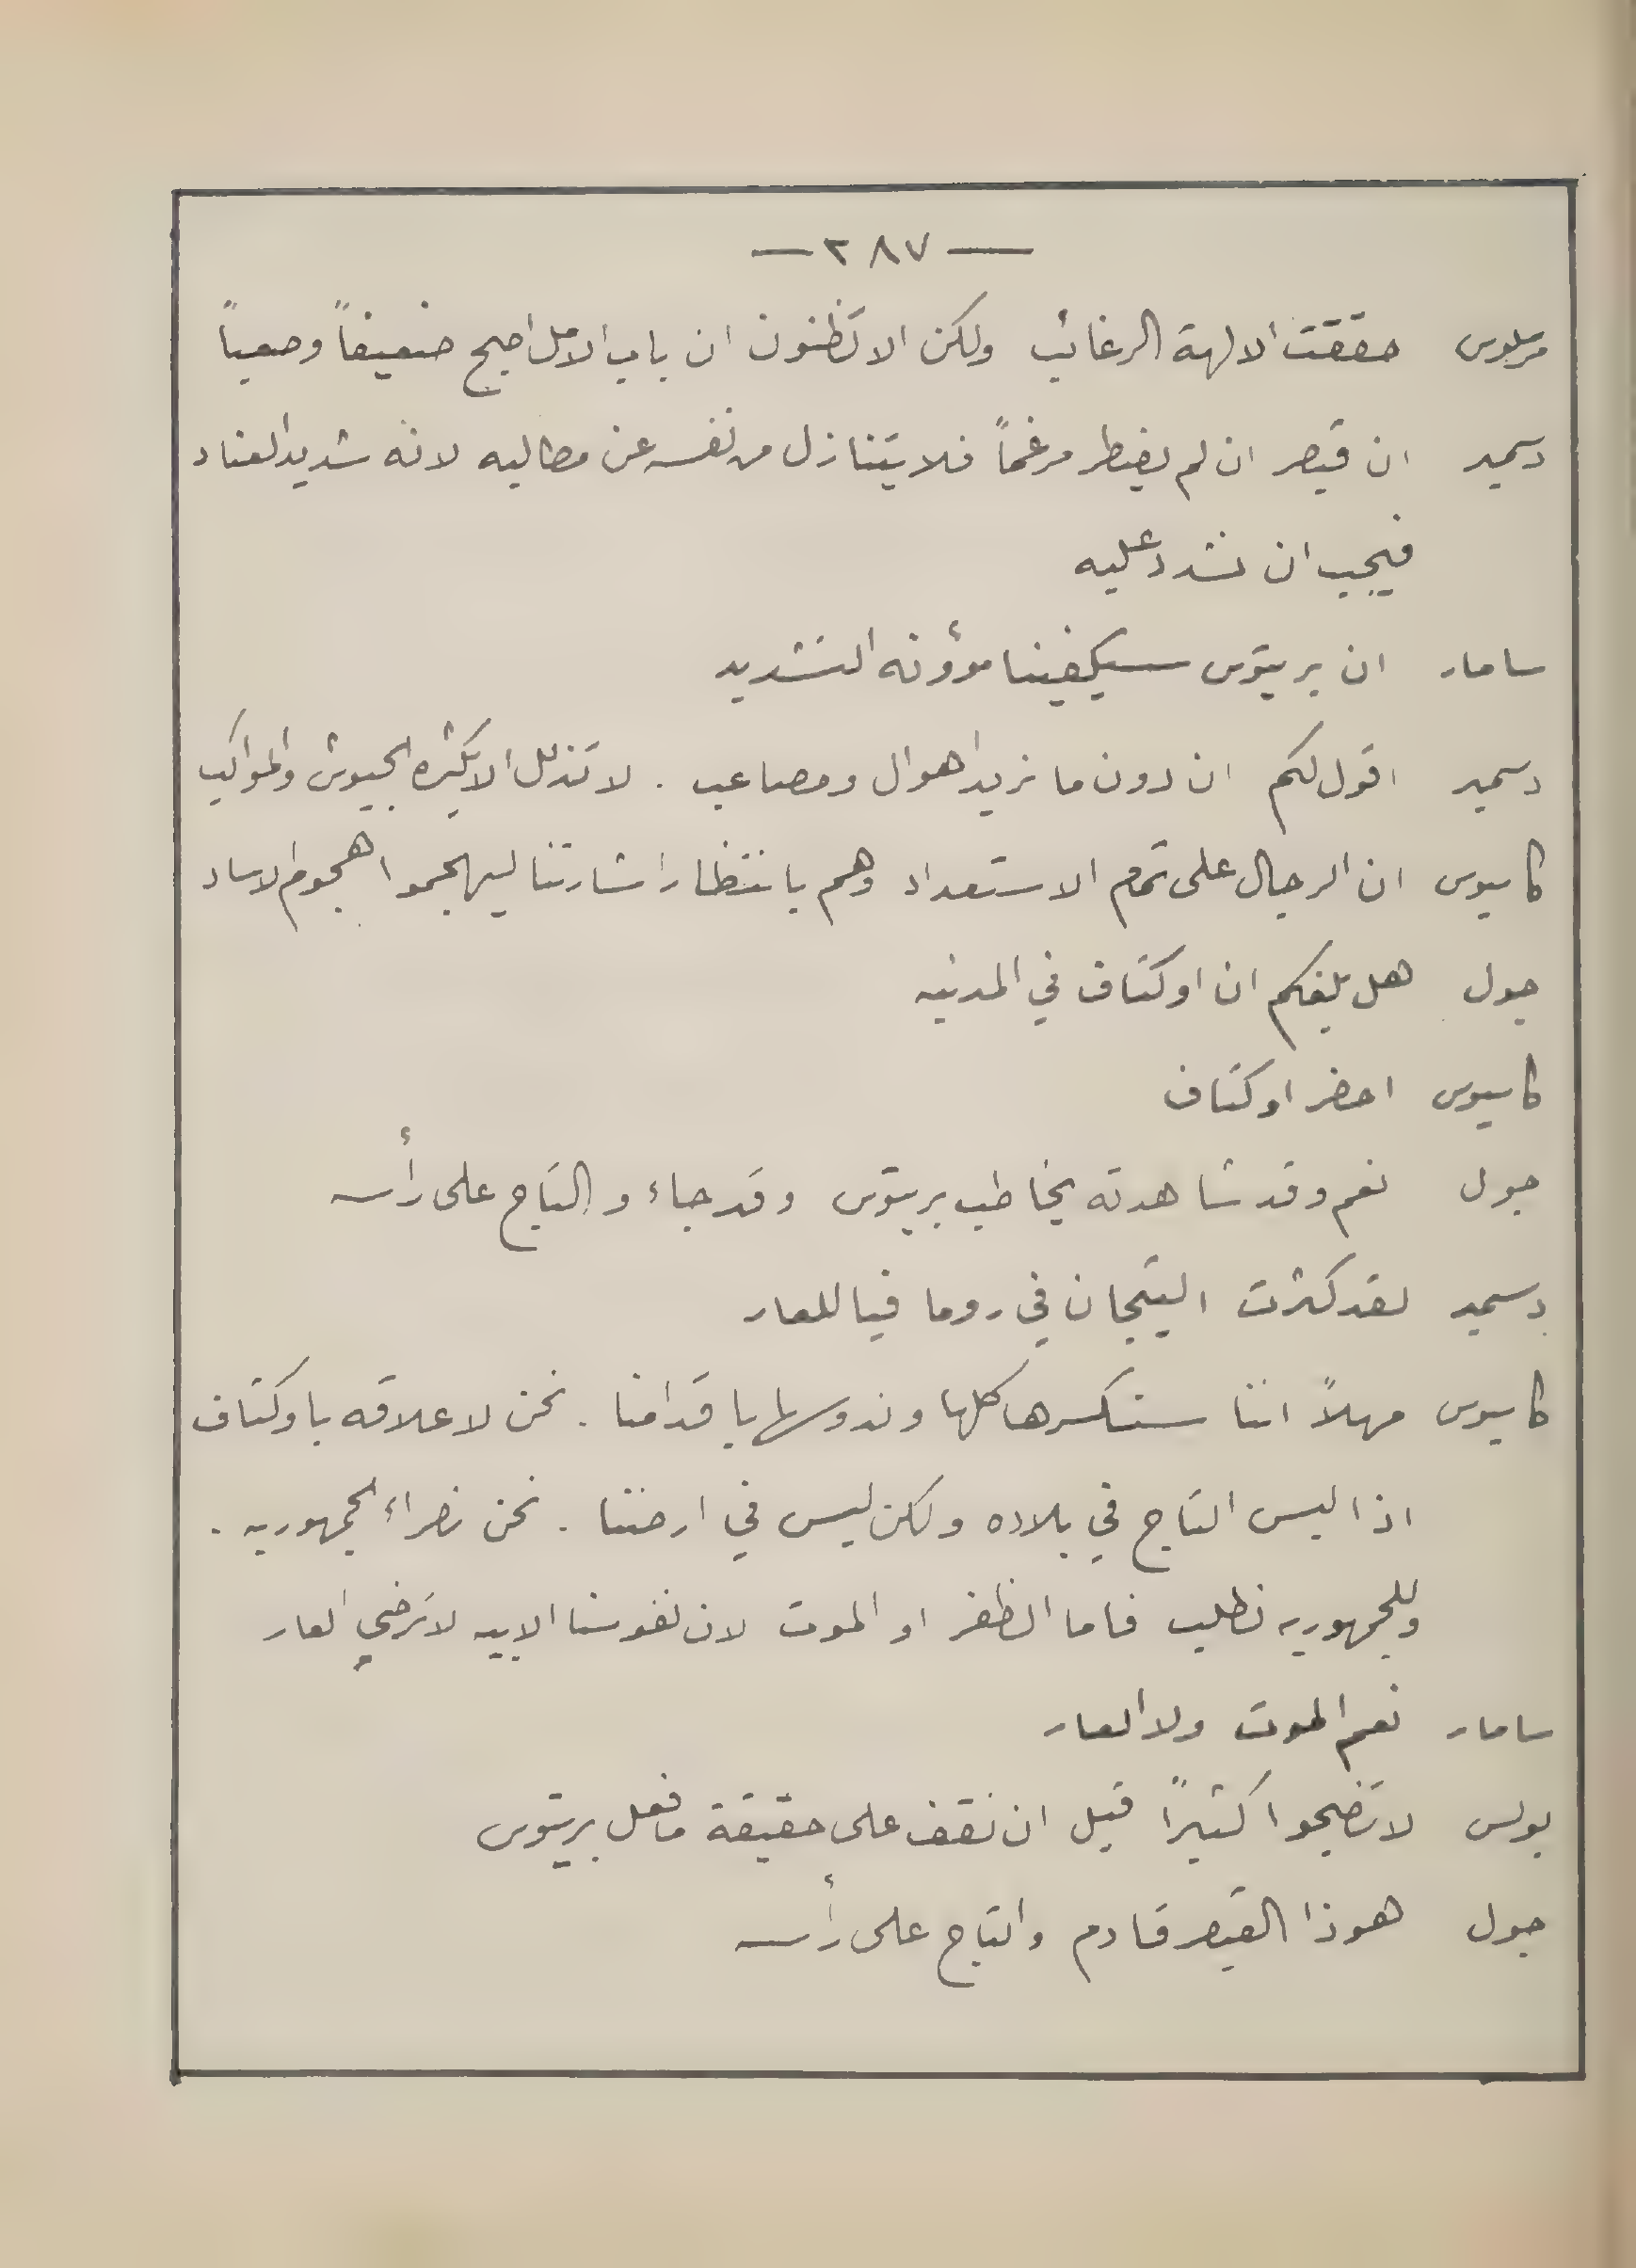 — ٢٨٧ —
مرسلوس حققت الالهة الرغائب ولكن الا تظنون ان باب الامل اصبح ضعيفاً وصعباً
دسمير ان قيصر ان لم يضطر مرغماً فلا يتنازل من نفسه عن مطاليبه لانه شديد العناد
فيجب ان نشدد عليه
سامار ان بريتوس سيكفينا مؤونه التشديد
دسمير اقول لكم ان دون ما نريد اهوال ومصاعب . لا تذلل الا بكثره الجيوش والمواكب
كاسيوس ان الرجال على تمام الاستعداد وهم بانتظار اشارتنا ليهجموا هجوم الاساد
جول هل بلغكم ان اوكتاف في المدينه
كاسيوس احضر اوكتاف
جول نعم وقد شاهدته يخاطب بريتوس وقد جاء والتاج على رأسه
دسمير لقد كثرت التيجان في روما فيا للعار
كاسيوس مهلاً اننا سنكسرها كلها وندوسها باقدامنا . نحن لا علاقه باوكتاف
اذا لبس التاج في بلاده ولكن ليس في ارضنا . نحن نصراء الجمهوريه .
وللجمهوريه نطلب فاما الظفر او الموت لان نفوسنا الابيه لا ترضي العار
سامار نعم الموت ولا العار
بولس لا تضجوا كثيراً قبل ان نقف على حقيقة ما فعل بريتوس
جول هوذا القيصر قادم والتاج على رأسه